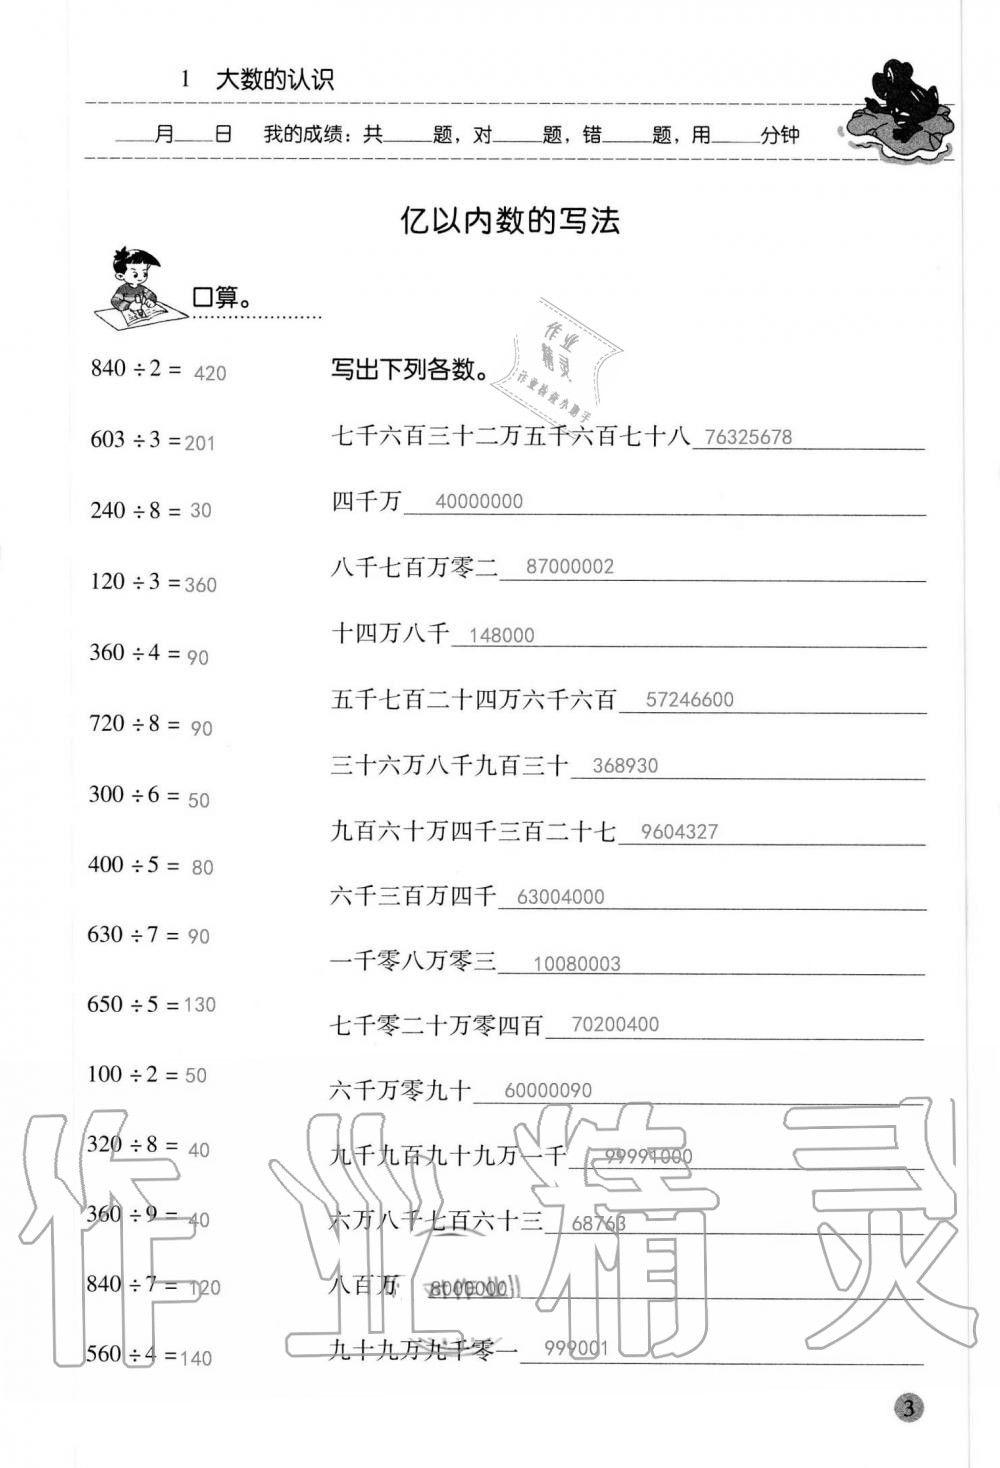 1 大数的认识
____月____日 我的成绩：共____题，对____题，错____题，用____分钟
亿以内数的写法
口算。
作业
精灵
作业检查小助手
840÷2= 420
603÷3=201
240÷8= 30
120÷3=360
360÷4= 90
720÷8= 90
300÷6= 50
400÷5= 80
630÷7= 90
650÷5=130
100÷2= 50
320÷8= 40
360÷9= 40
840÷7= 120
560÷4=140
写出下列各数。
七千六百三十二万五千六百七十八 76325678
四千万 40000000
八千七百万零二 87000002
十四万八千 148000
五千七百二十四万六千六百 57246600
三十六万八千九百三十 368930
九百六十万四千三百二十七 9604327
六千三百万四千 63004000
一千零八万零三 10080003
七千零二十万零四百 70200400
六千万零九十 60000090
九千九百九十九万一千 99991000
六万八千七百六十三 68763
八百万 8000000
九十九万九千零一 999001
作业精灵
3